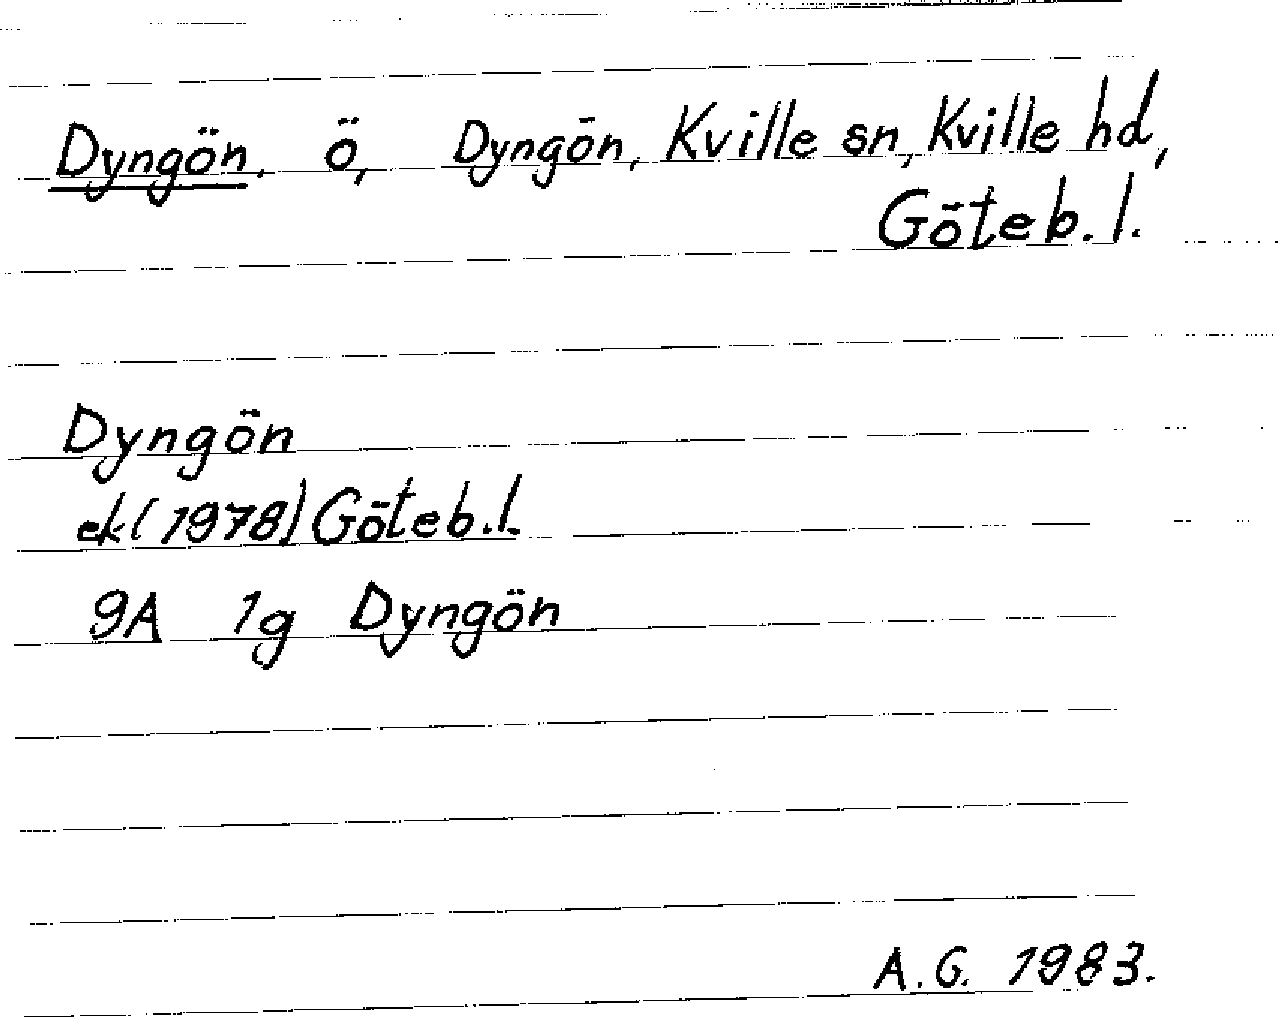 Dyngön, ö, Dyngön, Kville sn, Kville hd,
Göteb. l.
Dyngön
ek (1978) Göteb. l.
9A 1g Dyngön
A.G. 1983.